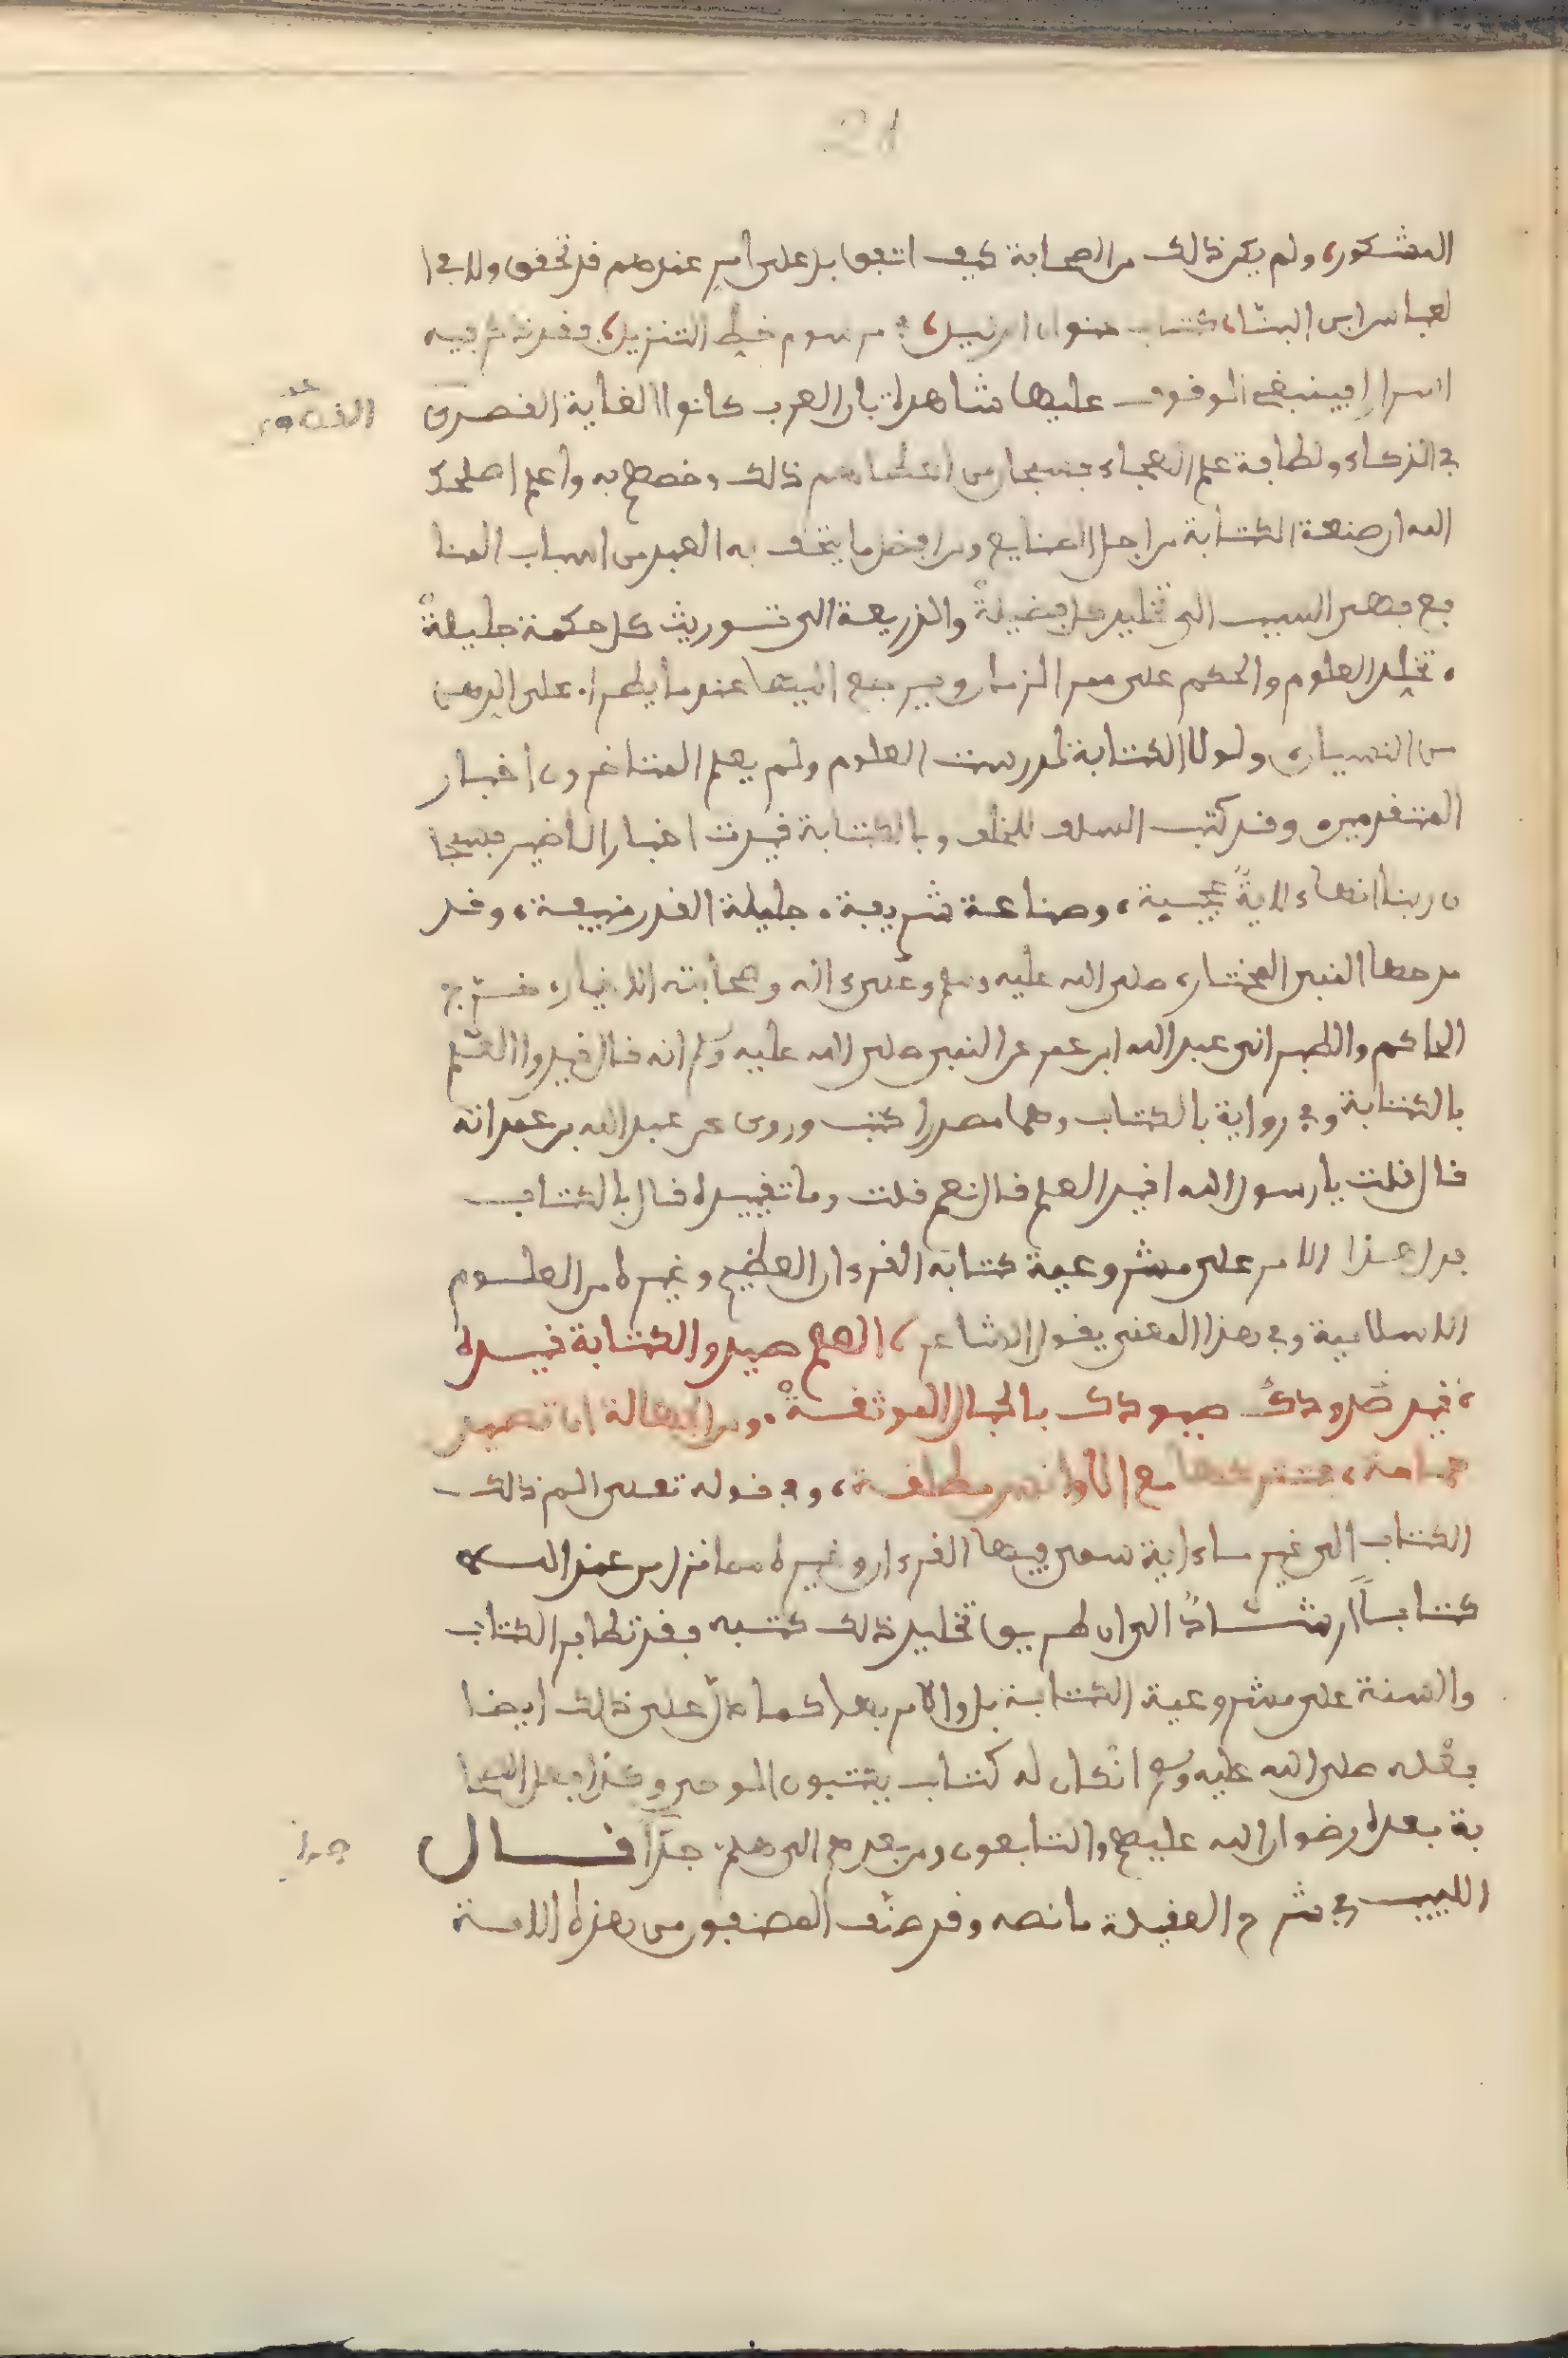 21
المشكور، ولم يكن ذلك من الصحابة كيف اتفق بل على أمر عندهم قد تحقق ولابي ا
لعباس ابن البنّا، كتاب عنوان الدليل، في مرسوم خط التنزيل، فقد ذكر فيه
اسرارا فينبغي الوقوف عليها شاهدة بان العرب كانوا الغاية القصوى
القصوى
في الذكاء ولطافة علم الهجاء فسبحان من اعطاهم ذلك وخصهم به واعلم اصلحك
الله ان صنعة الكتابة من اجل الصنايع ومن افضل ما يتخذ به العبد من اسباب المنا
فع فهي السبب الى تخليد كل فضيلةْ والذريعة الى توريث كل حكمة جليلةْ
، تخلد العلوم والحكم على ممر الزمان ويرجع اليها عند ما يطرا، على الذهن
من النسيان، ولولا الكتابة لدرست العلوم ولم يعلم المتاخرون اخبار
المتقدمين وقد كتب السلف للخلف وبالكتابة قيدت اخبار الماضين فسبحا
ن ربنا انها ءلايةً عجيبة، وصناعة شريفة، جليلة القدر منيعة، وقد
مدحها النبي المختار، صلى الله عليه وسلم وعلى ءاله وصحابته الاخيار، خرّج
الحاكم والطبراني عبد الله ابن عمر عن النبي صلى الله عليه وسلم انه قال قيدوا العلم
بالكتابة وفي رواية بالكتاب وهما مصدرا كتب وروى عن عبد الله بن عمر انه
قال قلت يا رسول الله اقيد العلم قال نعم قلت وما تقييده قال بالكتاب
فدل هذا الامر على مشروعية كتابة القرءان العظيم وغيره من العلوم
الاسلامية وفي هذا المعنى يقول الشاعر، العلم صيد والكتابة قيده
، قيد صيودك بالحبال الموثقةْ، ومن الجهالة ان تصيد
حمامة، فتتركها مع الاوانس مطلقة، وفي قوله تعلى الم ذلك
الكتاب الى غير ما ءاية سمى فيها القرءان وغيره مما نزل من عند الله
كتاباً ارشاداً الى ان طريق تخليد ذلك كتبه فقد تظافر الكتاب
والسنة على مشروعية الكتابة بل والامر بها كما دلّ على ذلك ايضا
فعْله صلى الله عليه وسلم اذ كان له كتاب يكتبون الوحي وكذا فعل الصحا
بة بعده رضوان الله عليهم والتابعون ومن بعدهم الى هلم جرّاً قال
جرا
اللبيب في شرح العقيلة ما نصه وقد صنّف المصنفون من هذه الامة